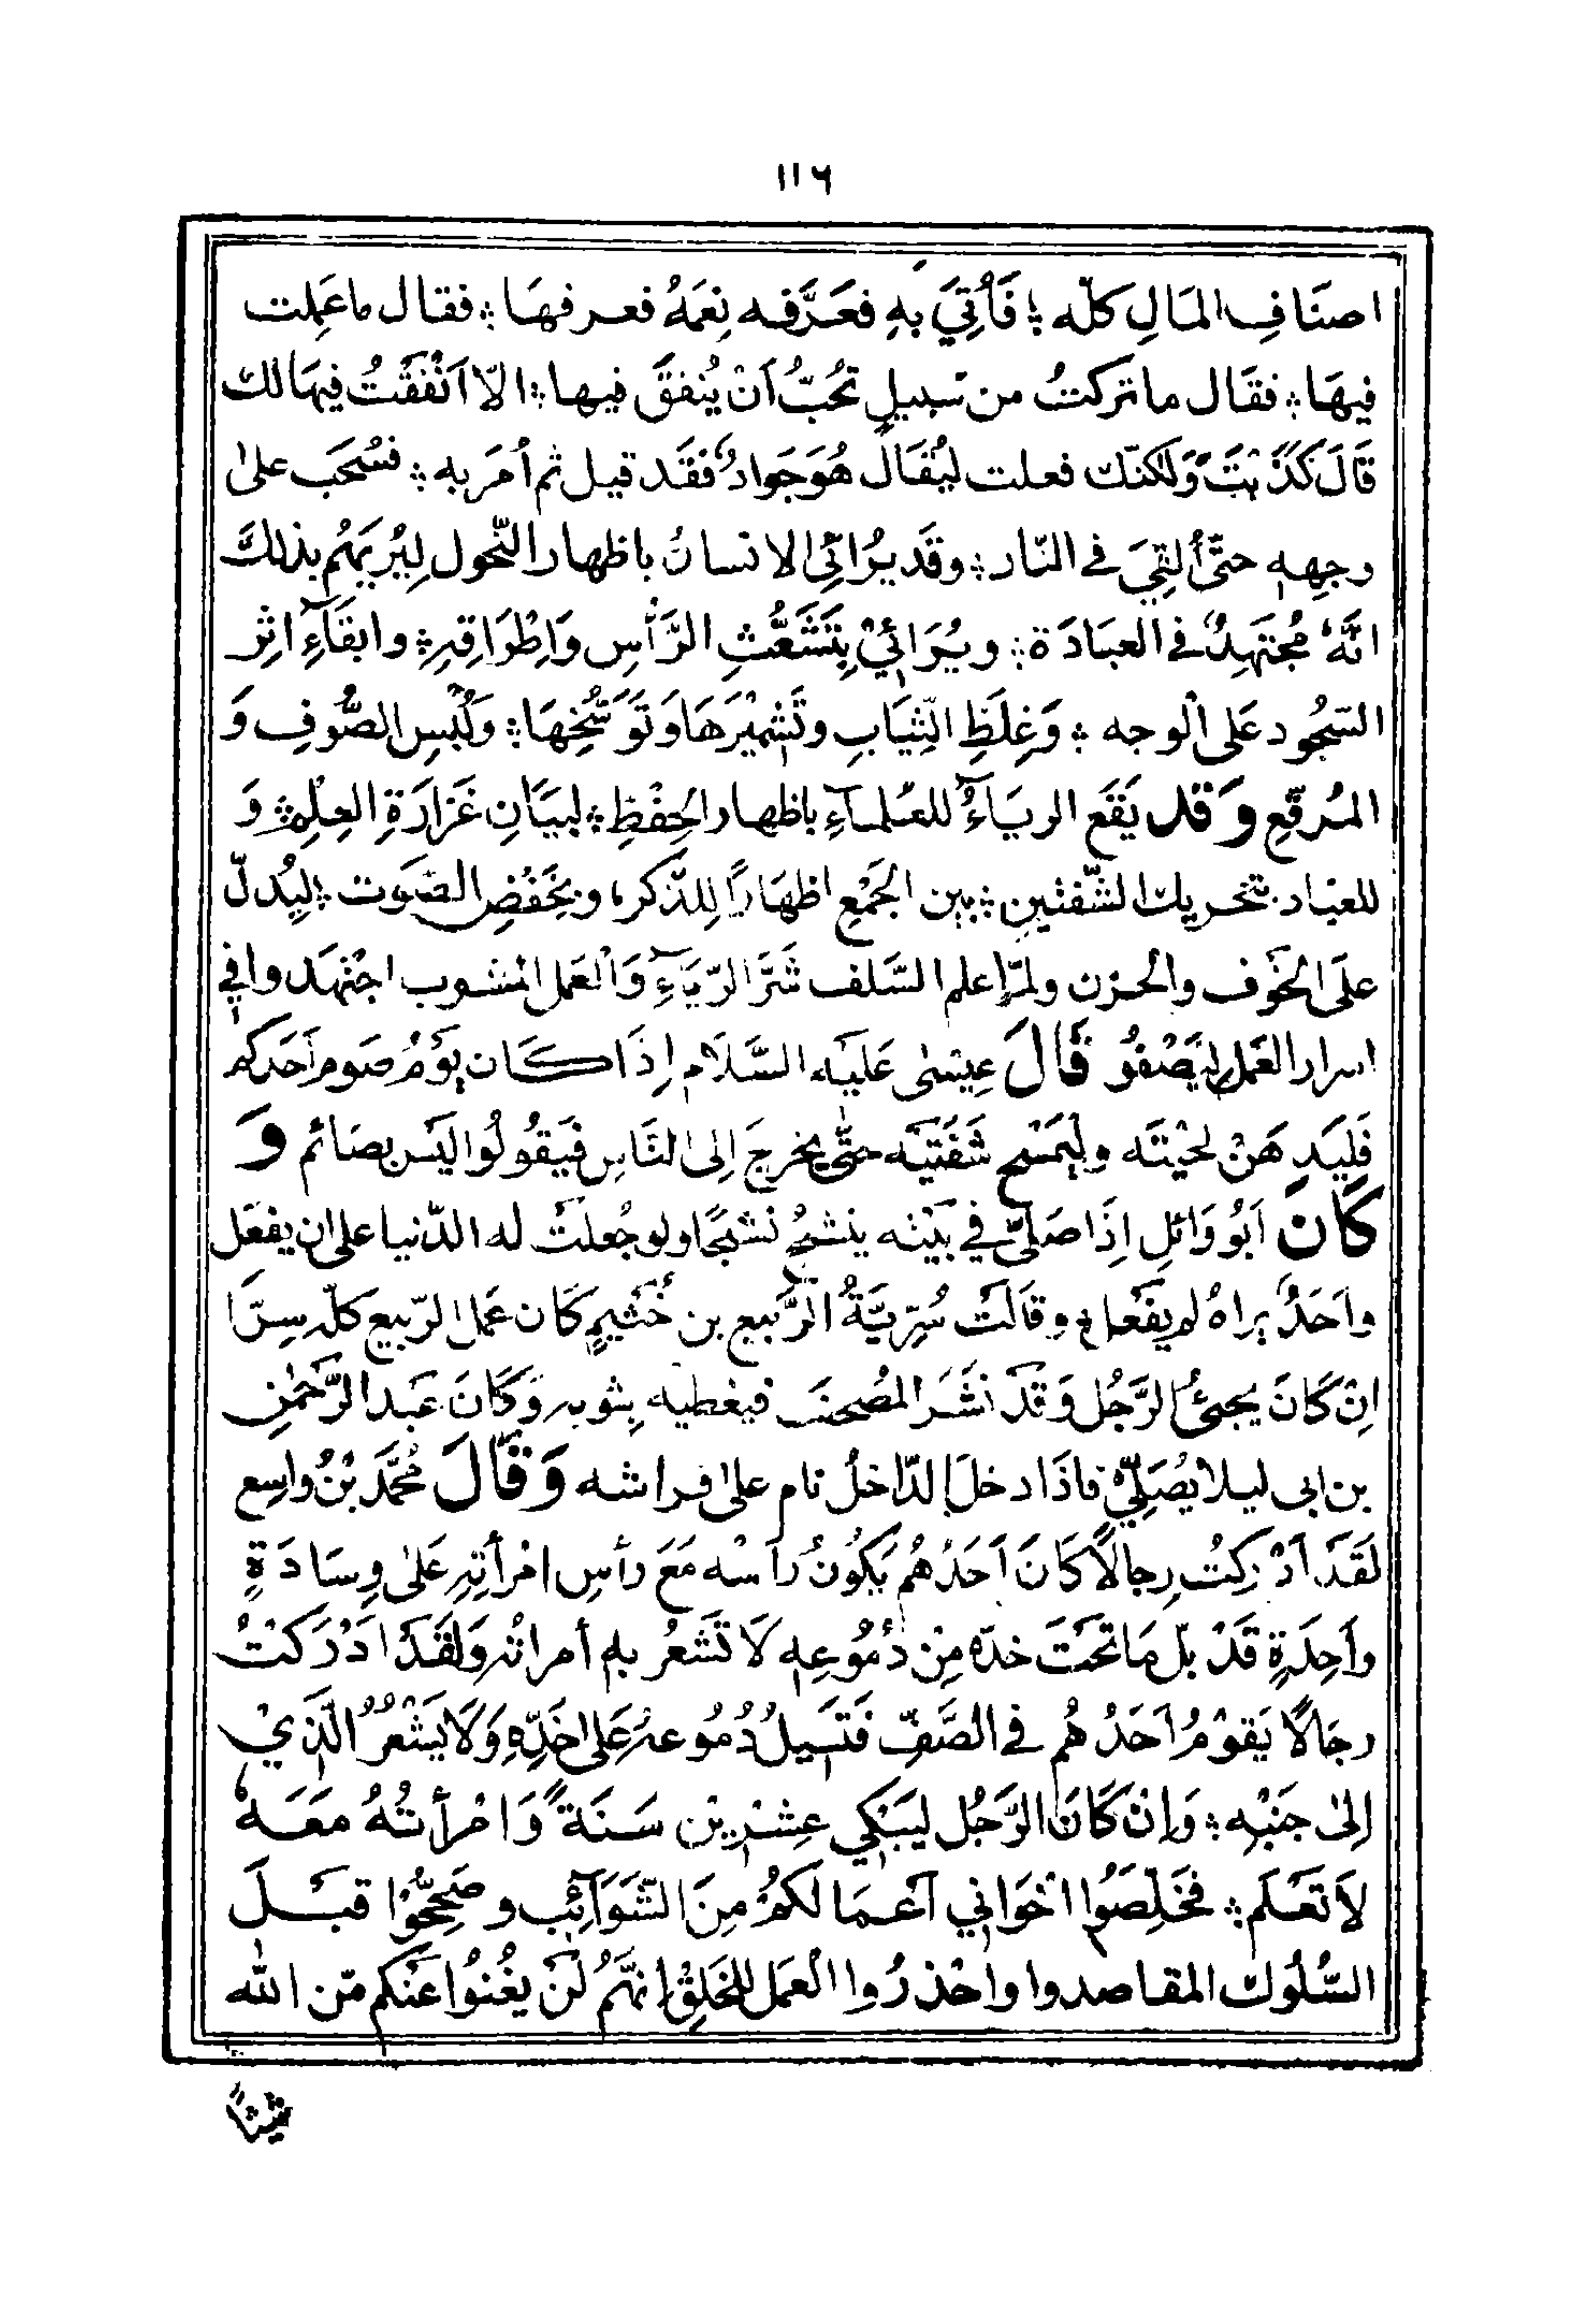 ١١٦
اصنَافِ المَالِ كلّه ؛ فَأُتِيَ بِهِ فعَرَّفه نِعَمَهُ فعرفهَا ؛ فقال ما عَمِلت
فيهَا ؛ فقَال ما تركتُ من سَبيلٍ تحُبُّ اَنْ يُنفقَ فيها ؛ الّا اَنْفَقتُ فيهَا لك
قَالَ كَذَبْتَ وَلٰكنّك فعلت ليُقَالَ هُوَ جَوادٌ فقَد قيل ثم أُمَر به ؛ فسُحَب علىٰ
وجهِهٖ حتّٰى أُلقِيَ في النّار ؛ وقَد يُرائِى الانسانُ باظهار النّحول لِيُريَهُم بذلكَ
انَّهُ مُجتَهِدٌ في العبَادَة ؛ ويُرَائِيْ بِتَشَعُّثِ الرَّأسِ وَاِطْرَاقِهٖ ؛ وابقَآءِ اثِر
السّجُود عَلى الوجه ؛ وَغِلَظِ الثِّيَابِ وتَشمْيْرهَا وَتَوَسُّخِهَا ؛ وَلُبْسِ الصُّوفِ وَ
المُرقّعِ وَقد يَقَع الريَآءُ للعُلمآءِ باظهار الحِفْظِ ؛ لبيَانِ غَزارَةِ العِلِم ؛ وَ
للعبّاد بتحريك الشّفتين ؛ بين الجَمْعِ اظهَارًا لِلذّكر ، وبخَفْضِ الصَّوت ؛ ليُدلّ
علَى الخَوف والحزن ولمّا علم السَّلف شَرَّ الرّيَآءِ وَالعَمل المشوب اجتهَدوا في
اسرار العَمل ليَصْفُو قَالَ عِيسٰى عَليه السَّلَام اِذَا كَان يَوْمُ صَومِ اَحَدكم
فَليَدهَنْ لحيْتَه وليَمْسَح شَفَتيْه حتّٰى يخرجَ اِلى النَّاسِ فَيَقُولُوا لَيس بصَائم وَ
كَانَ اَبُو وَائلٍ اِذَا صَلّٰى في بَيْته ينشجُ نشيجًا ولو جُعلَت له الدّنيا على ان يفعَل
واَحَدٌ يراهُ لم يفعَل ؛ وقَالَت سُرِّيَّةُ الرَّبيع بن خُثَيمٍ كَان عَمل الرّبيع كلّه سِرًّا
اِنْ كَانَ يجئُ الرَّجُل وَقَدْ نَشَرَ المُصحفَ فيغطيه بِثوبه وَكَانَ عَبد الرَّحْمٰنِ
بن ابى ليلا يُصَلِّيْ فاذَا دخلَ الدّاخلُ نام علىٰ فراشه وَقَالَ مُحَمَّد بْنُ واسِع
لَقَدَ اَدْرَكتُ رِجالًا كَانَ اَحَدُهُم يَكُونُ رأسْه مَعَ رأسِ امْرأتِهٖ عَلىٰ وِسَادَةٍ
واَحِدَةٍ قَدْ بلّ مَا تحَتَ خدّه مِنْ دُمُوعِهٖ لَا تَشعُر بهٖ أمراتُه وَلقَدَ ادْرَكْتُ
رجَالًا يَقوْمُ اَحَدُهُم في الصَّفِّ فَتَسيلُ دُمُوعهُ عَلىٰ خَدِّهٖ وَلَا يَشْعُرُ الَّذِيْ
اِلىٰ جَنْبِهٖ ؛ وَاِنْ كَانَ الرَّجُل ليَبْكي عِشرِيْن سَنَةً وَامْرأتُهُ مَعَهُ
لَا تَعْلَم ؛ فخَلِّصُوا اخْوَاني اَعْمَا لَكُمْ مِنَ الشَّوَآئِب وصَحِّحُوْا قبْلَ
السُّلُوك المقاصدوا واحْذرُوا العَمل للخَلِق اِنهَّمُ لَنْ يغُنُوا عَنكم مّن الله
شيئًا